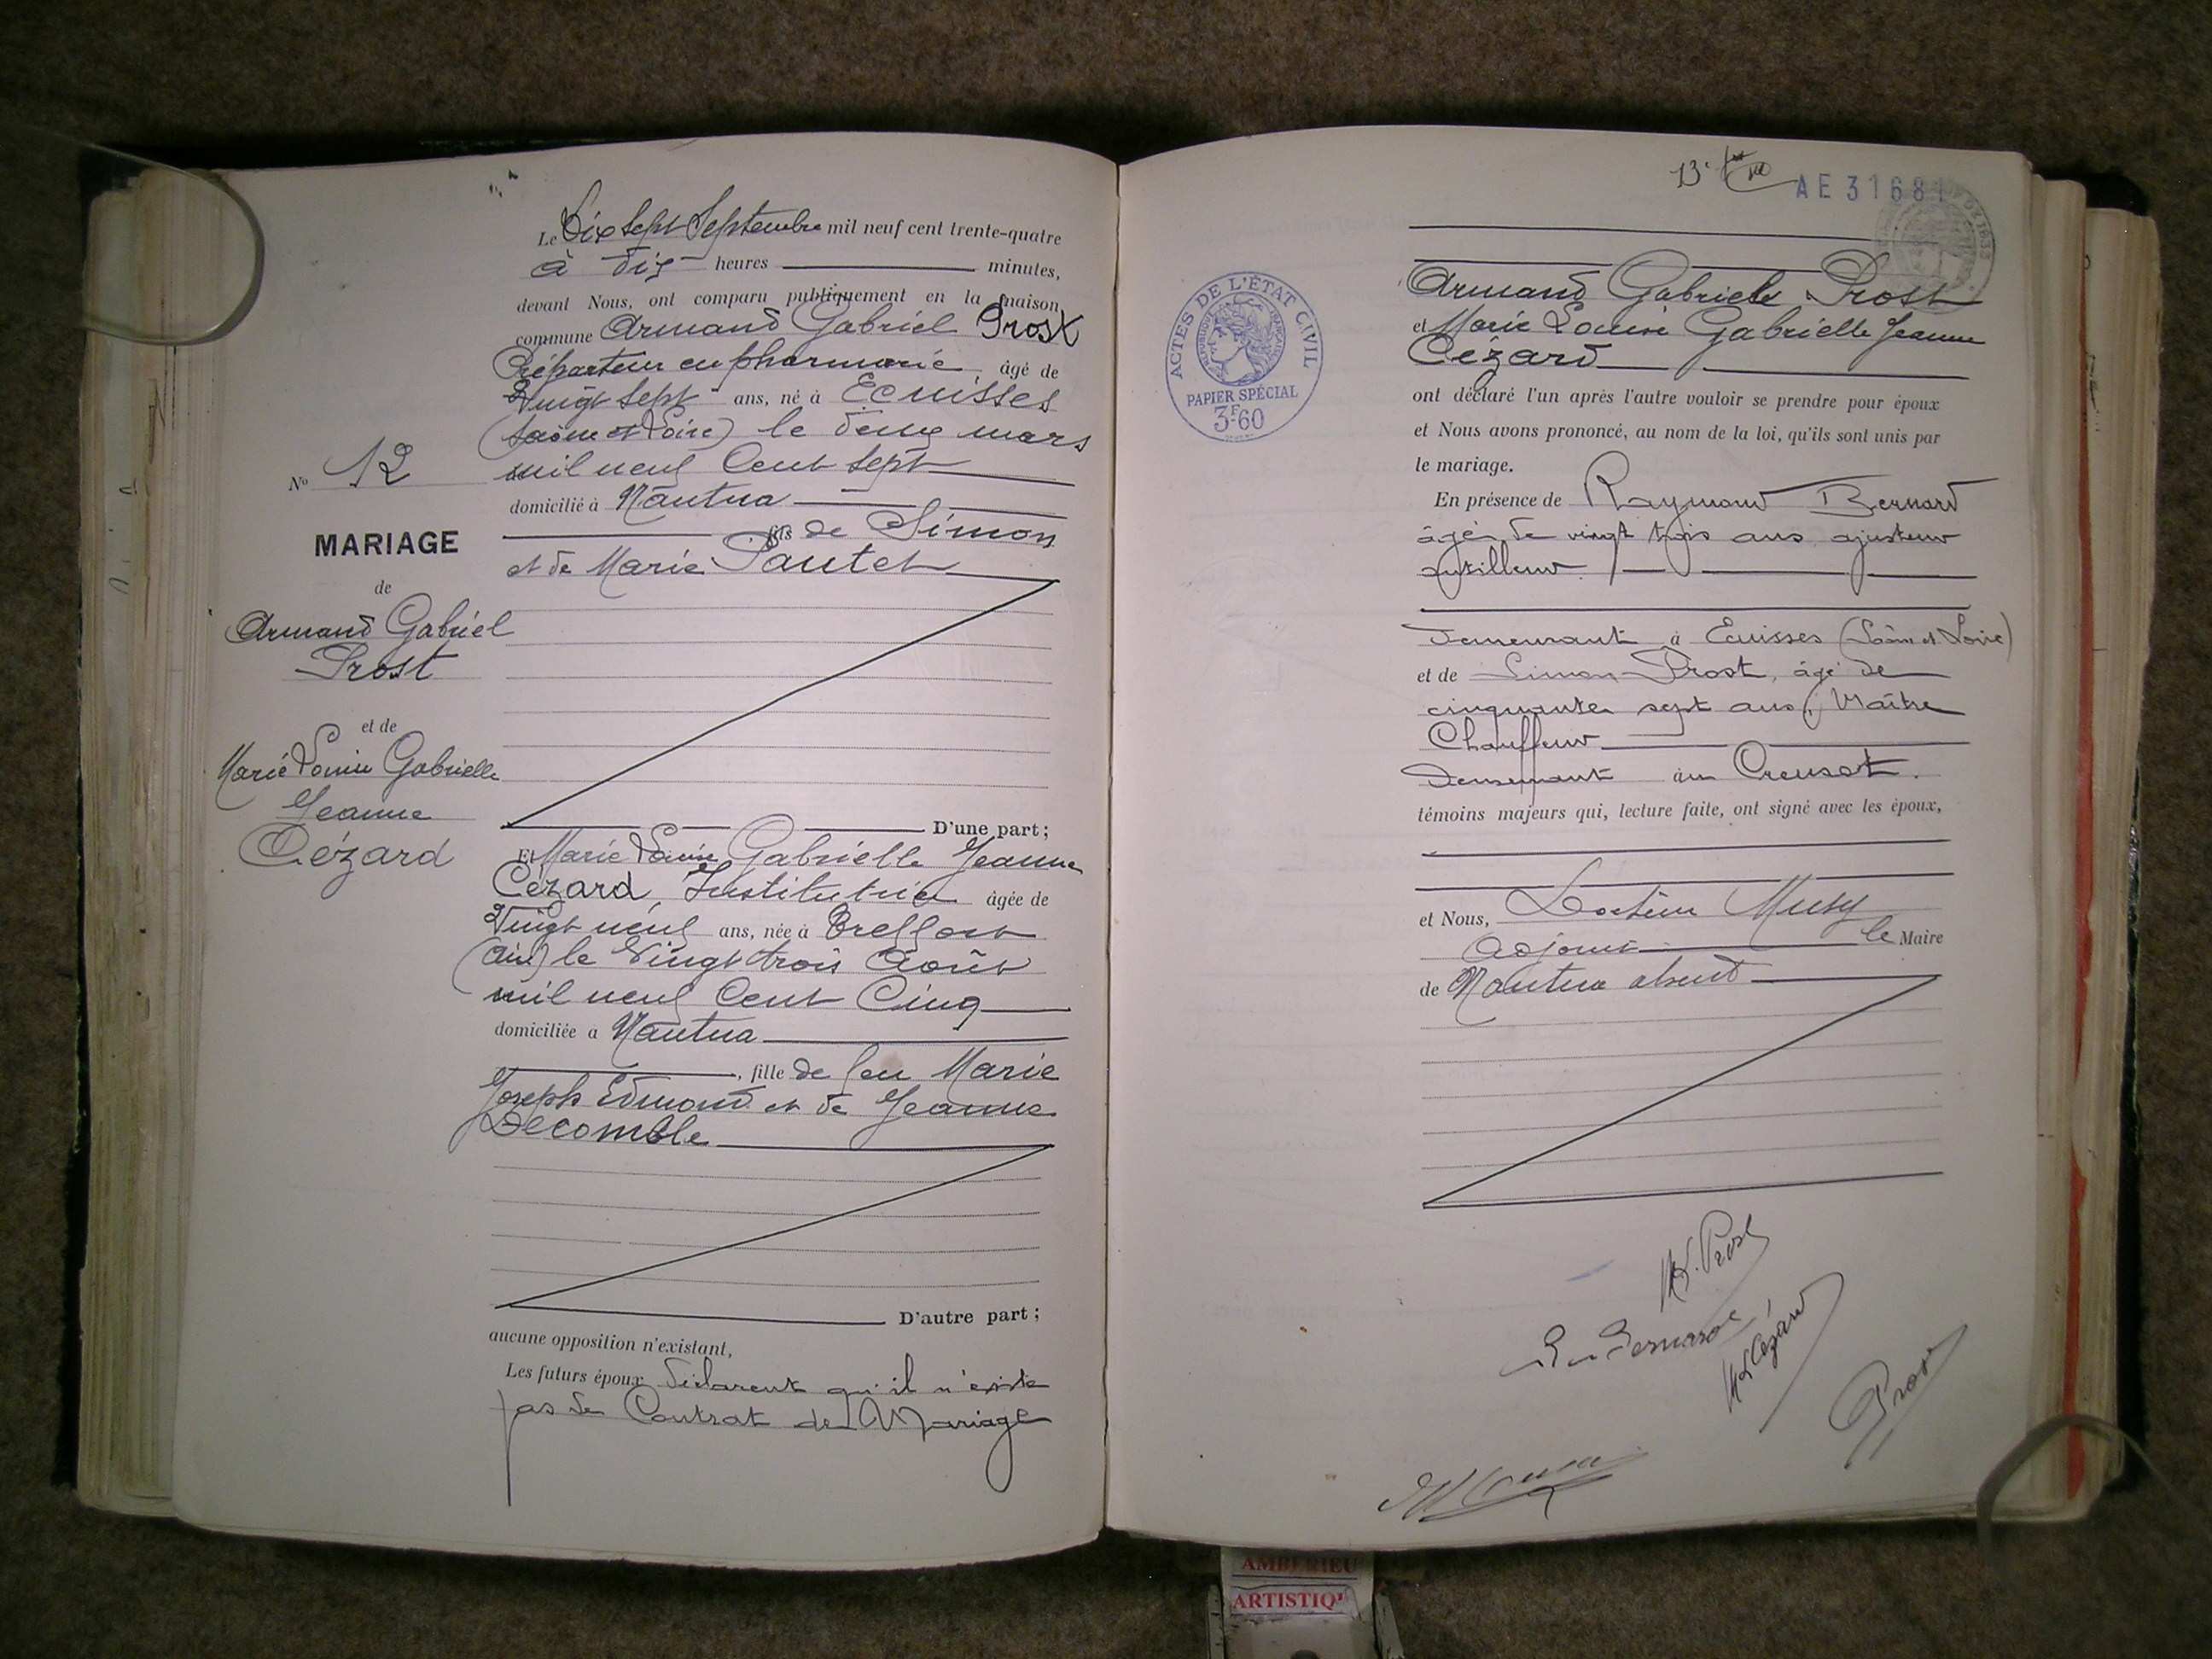 Le Dix Sept Septembre mil neuf cent trente-quatre
à dix heures minutes,
devant Nous, ont comparu publiquement en la maison
commune Armand Gabriel Prost
Préparateur en pharmacie âgé de
Vingt Sept ans, né à Ecuisses
(Saône et Loire) le deux mars
mil neuf Cent Sept
domicilié à Nantua
fils de Simon
et de Marie Pautet
D'une part;
Et Marie Louise Gabrielle Jeanne
Cézard, Institutrice âgée de
Vingt neuf ans, née à Treffort
(Ain) le Vingt trois Août
mil neuf Cent Cinq
domiciliée à Nantua
, fille de feu Marie
Joseph Edmond et de Jeanne
Decomble
D'autre part;
aucune opposition n'existant,
Les futurs époux déclarent qu'il n'existe
pas de Contrat de Mariage
No 12
MARIAGE
de
Armand Gabriel
Prost
et de
Marie Louise Gabrielle
Jeanne
Cézard
13e
AE 31681
ACTES DE L'ÉTAT CIVIL
RÉPUBLIQUE FRANÇAISE
PAPIER SPÉCIAL
3F60
Armand Gabriel Prost
et Marie Louise Gabrielle Jeanne
Cézard
ont déclaré l'un après l'autre vouloir se prendre pour époux
et Nous avons prononcé, au nom de la loi, qu'ils sont unis par
le mariage.
En présence de Raymond Bernard
âgé de vingt trois ans ajusteur
outilleur
demeurant à Ecuisses (Saône et Loire)
et de Simon Prost, âgé de
cinquante sept ans, Maître
Chauffeur
demeurant au Creusot.
témoins majeurs qui, lecture faite, ont signé avec les époux,
et Nous, Docteur Musy
adjoint le Maire
de Nantua absent
Prost
Bernard
M L Cézard
Prost
AMBERIEU
ARTISTIQ